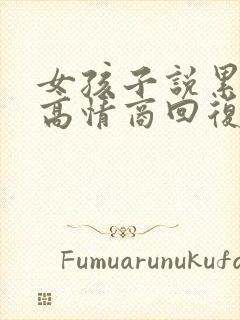 女孩子說累
高情商回復
Fumuarunukufa